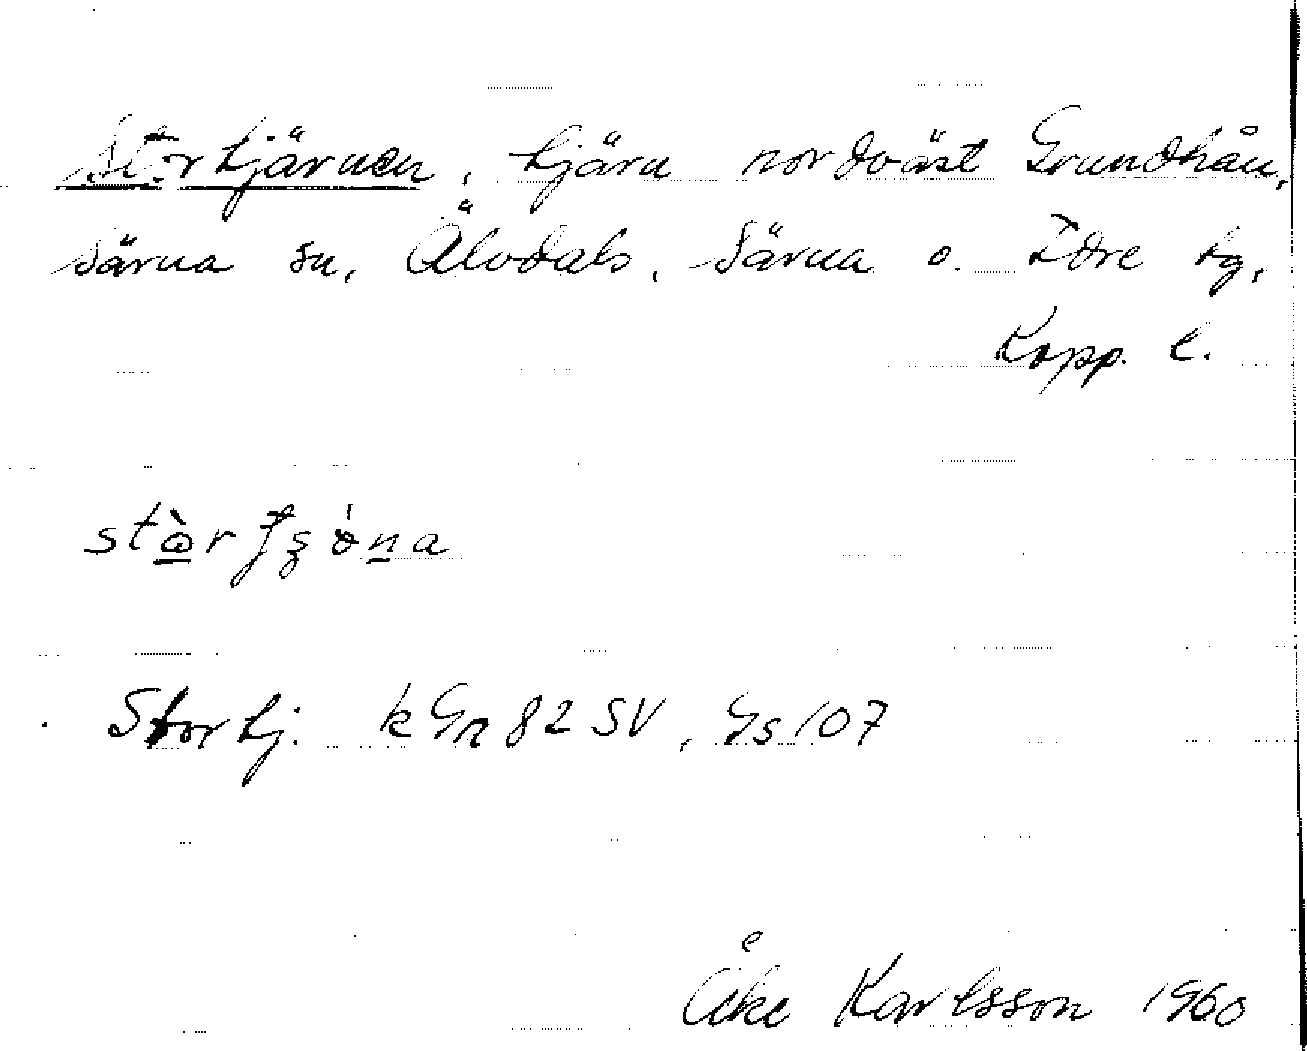 Stortjärnen, tjärn nordväst Grundhån,
Särna sn, Älvdals, Särna o. Idre tg,
Kopp. l.
Stortj. k Gn 82 SV, Gs 107
Åke Karlsson 1960